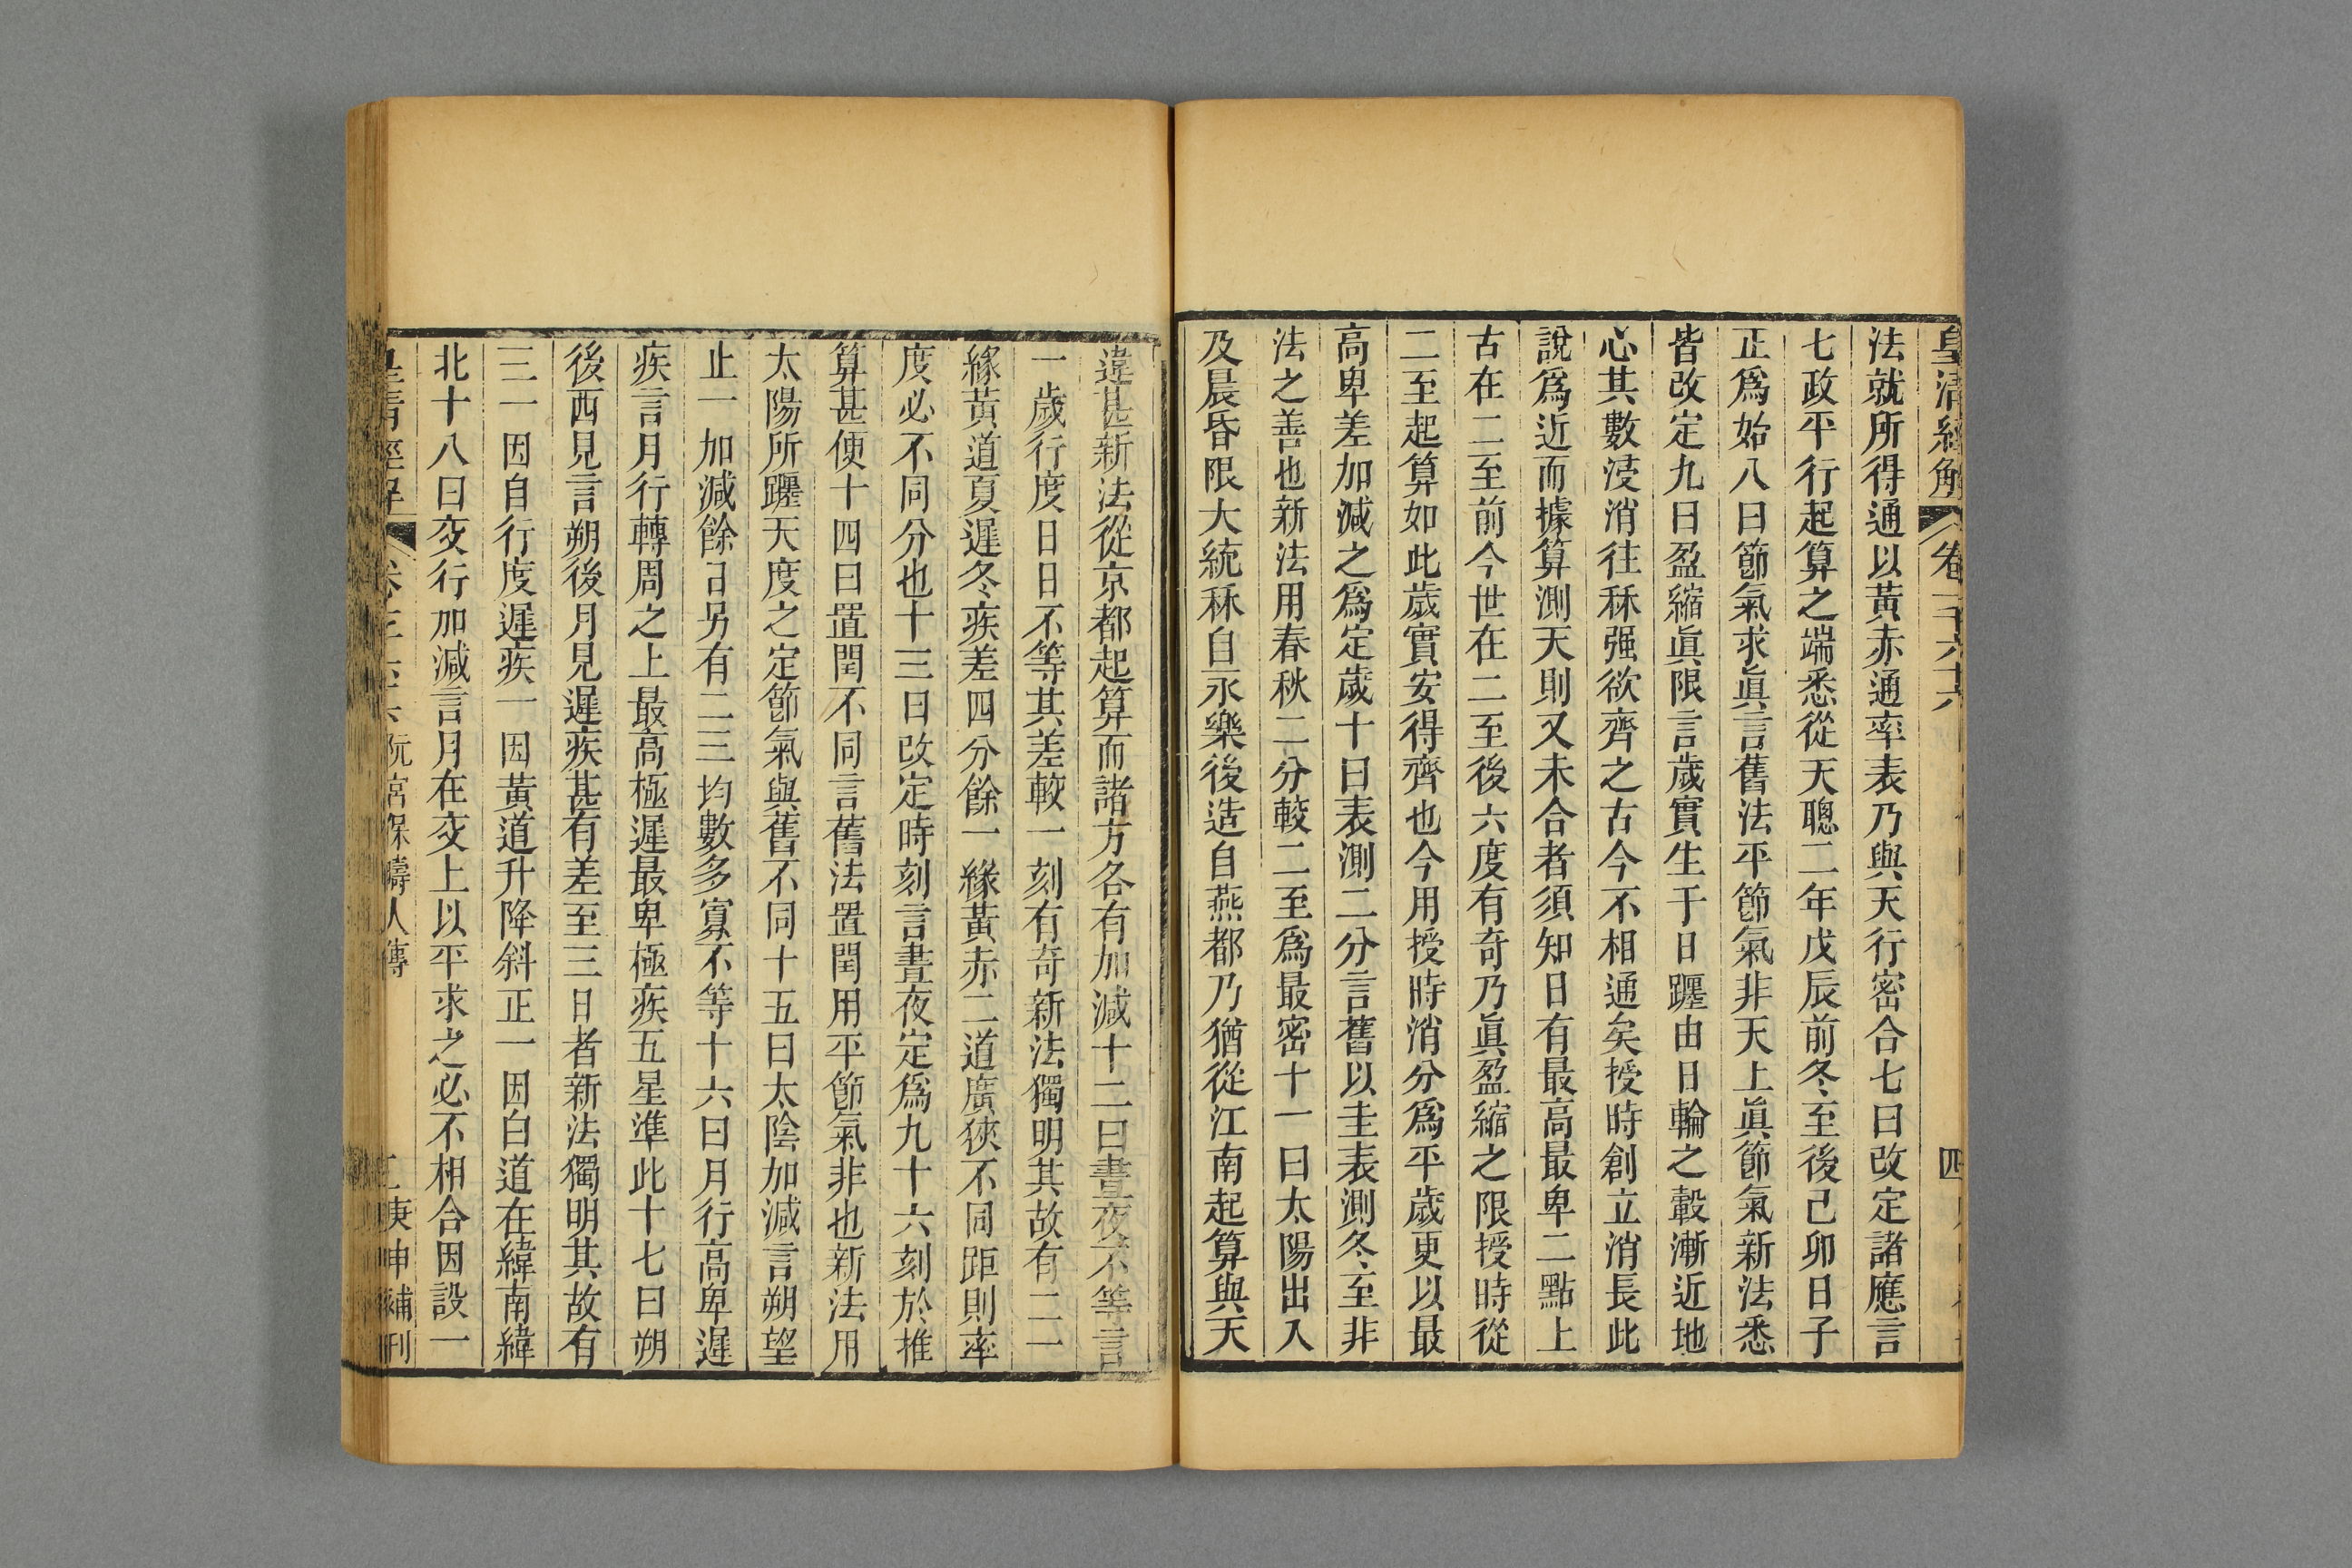 皇清經解 卷一千六十六 四
法就所得通以黃赤通率表乃與天行密合七曰改定諸應言
七政平行起算之端悉從天聰二年戊辰前冬至後己卯日子
正爲始八曰節氣求眞言舊法平節氣非天上眞節氣新法悉
皆改定九曰盈縮眞限言歲實生于日躔由日輪之轂漸近地
心其數浸消往秝强欲齊之古今不相通矣授時創立消長此
說爲近而據算測天則又未合者須知日有最高最卑二點上
古在二至前今世在二至後六度有奇乃眞盈縮之限授時從
二至起算如此歲實安得齊也今用授時消分爲平歲更以最
高卑差加減之爲定歲十曰表測二分言舊以圭表測冬至非
法之善也新法用春秋二分較二至爲最密十一曰太陽出入
及晨昏限大統秝自永樂後造自燕都乃猶從江南起算與天
違甚新法從京都起算而諸方各有加減十二曰晝夜不等言
一歲行度日日不等其差較一刻有奇新法獨明其故有二一
緣黃道夏遲冬疾差四分餘一緣黃赤二道廣狹不同距則率
度必不同分也十三曰改定時刻言晝夜定爲九十六刻於推
算甚便十四曰置閏不同言舊法置閏用平節氣非也新法用
太陽所躔天度之定節氣與舊不同十五曰太陰加減言朔望
止一加減餘日另有二三均數多寡不等十六曰月行高卑遲
疾言月行轉周之上最高極遲最卑極疾五星準此十七曰朔
後西見言朔後月見遲疾甚有差至三日者新法獨明其故有
三一因自行度遲疾一因黃道升降斜正一因白道在緯南緯
北十八曰交行加減言月在交上以平求之必不相合因設一
阮宮保疇人傳 庚申補刊